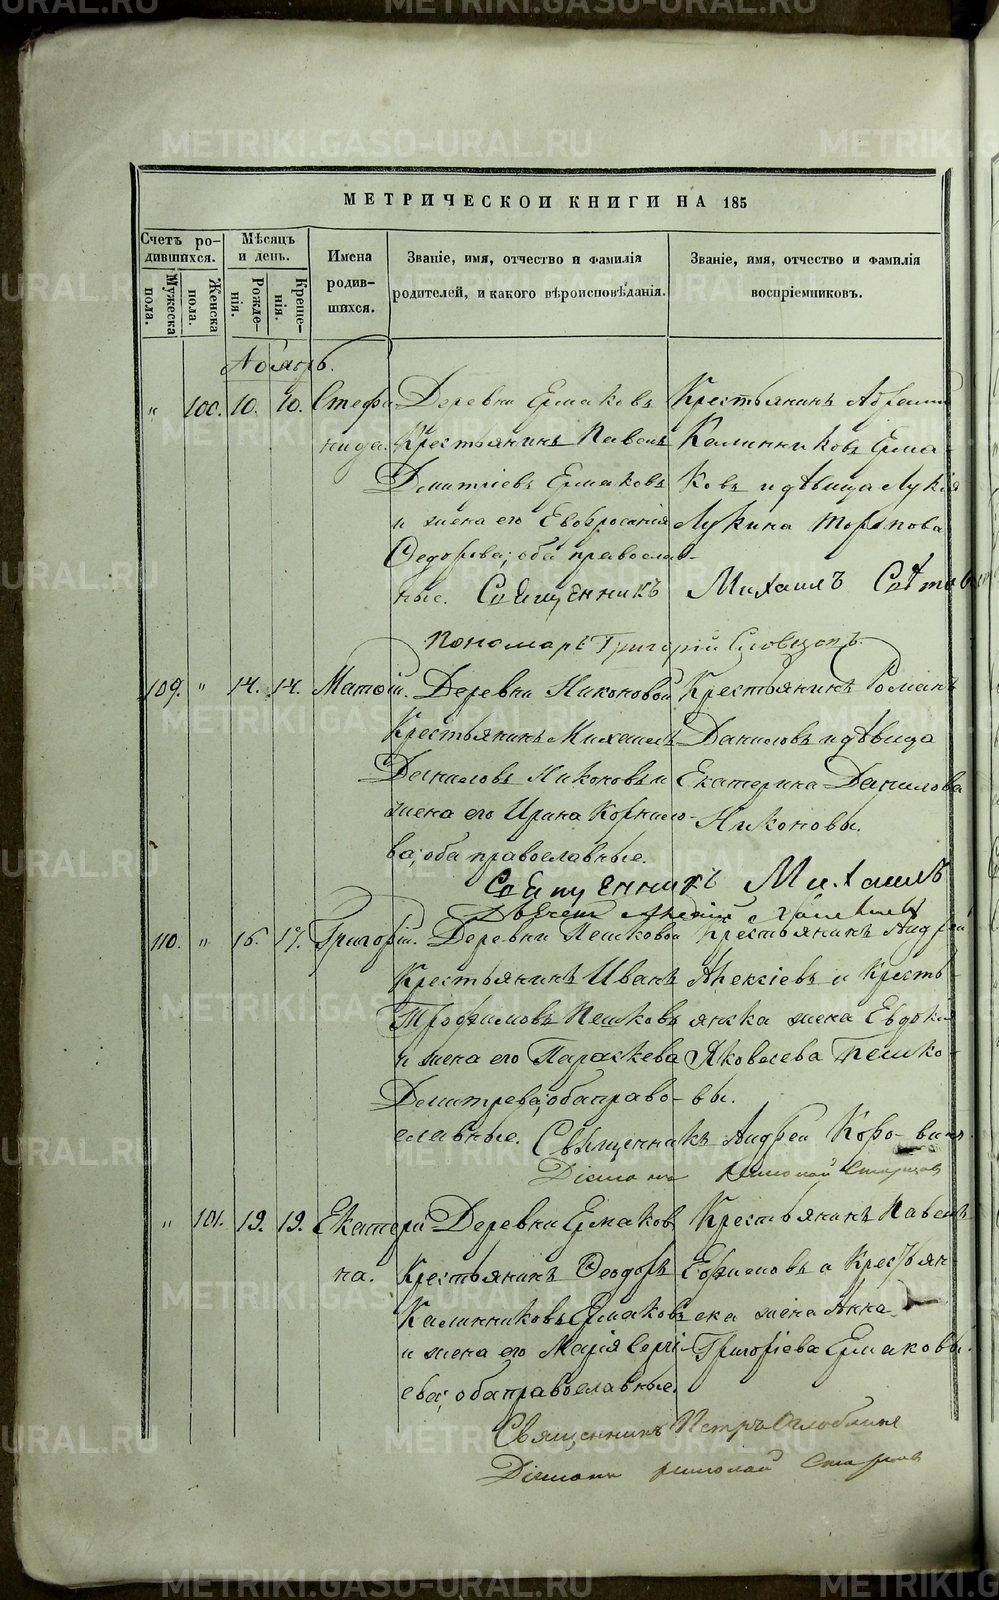 МЕТРИЧЕСКОЙ КНИГИ НА 185
Счетъ родившихся.
Мужеска пола.
Женска пола.
Мѣсяцъ и день.
Рожденія.
Крещенія.
Имена родившихся.
Званіе, имя, отчество и фамилія родителей, и какого вѣроисповѣданія.
Званіе, имя, отчество и фамилія воспріемниковъ.
Ноябрь.
" 100. 10. 10. Стефанида.
Деревни Ермаковъ
Крестьянинъ Павелъ
Дмитріевъ Ермаковъ
и жена его Евфросинія
Федорова; оба православ-
ные.
Крестьянинъ Абрамъ
Калинниковъ Ерма-
ковъ и дѣвица Лукія
Лукина
Священникъ Михаилъ
Пономарь Григорій Словцовъ.
109. " 14. 14. Матѳій.
Деревни Никоновой
Крестьянинъ Михаилъ
Даниловъ Никоновъ и
жена его Ирина Корнило-
ва; оба православные.
Крестьянинъ Романъ
Даниловъ и дѣвица
Екатерина Данилова
Никоновы.
Священникъ Михаилъ
110. " 16. 17. Григорій.
Деревни Пешковой
Крестьянинъ Иванъ
Трофимовъ Пешковъ
и жена его Параскева
Димитрева; оба право-
славные.
Крестьянинъ Андрей
Алексіевъ и Кресть-
янска жена Евдокія
Яковлева Пешко-
вы.
Священникъ Андрей Коровинъ.
" 101. 19. 19. Екатерина.
Деревни Ермаковъ
Крестьянинъ Ѳеодоръ
Калинниковъ Ермаковъ
и жена его Марія Сергі-
ева; оба православные.
Крестьянинъ Павелъ
Ефимовъ и Крестьян-
ска жена Анна
Григоріева Ермаковы.
Священникъ Петръ